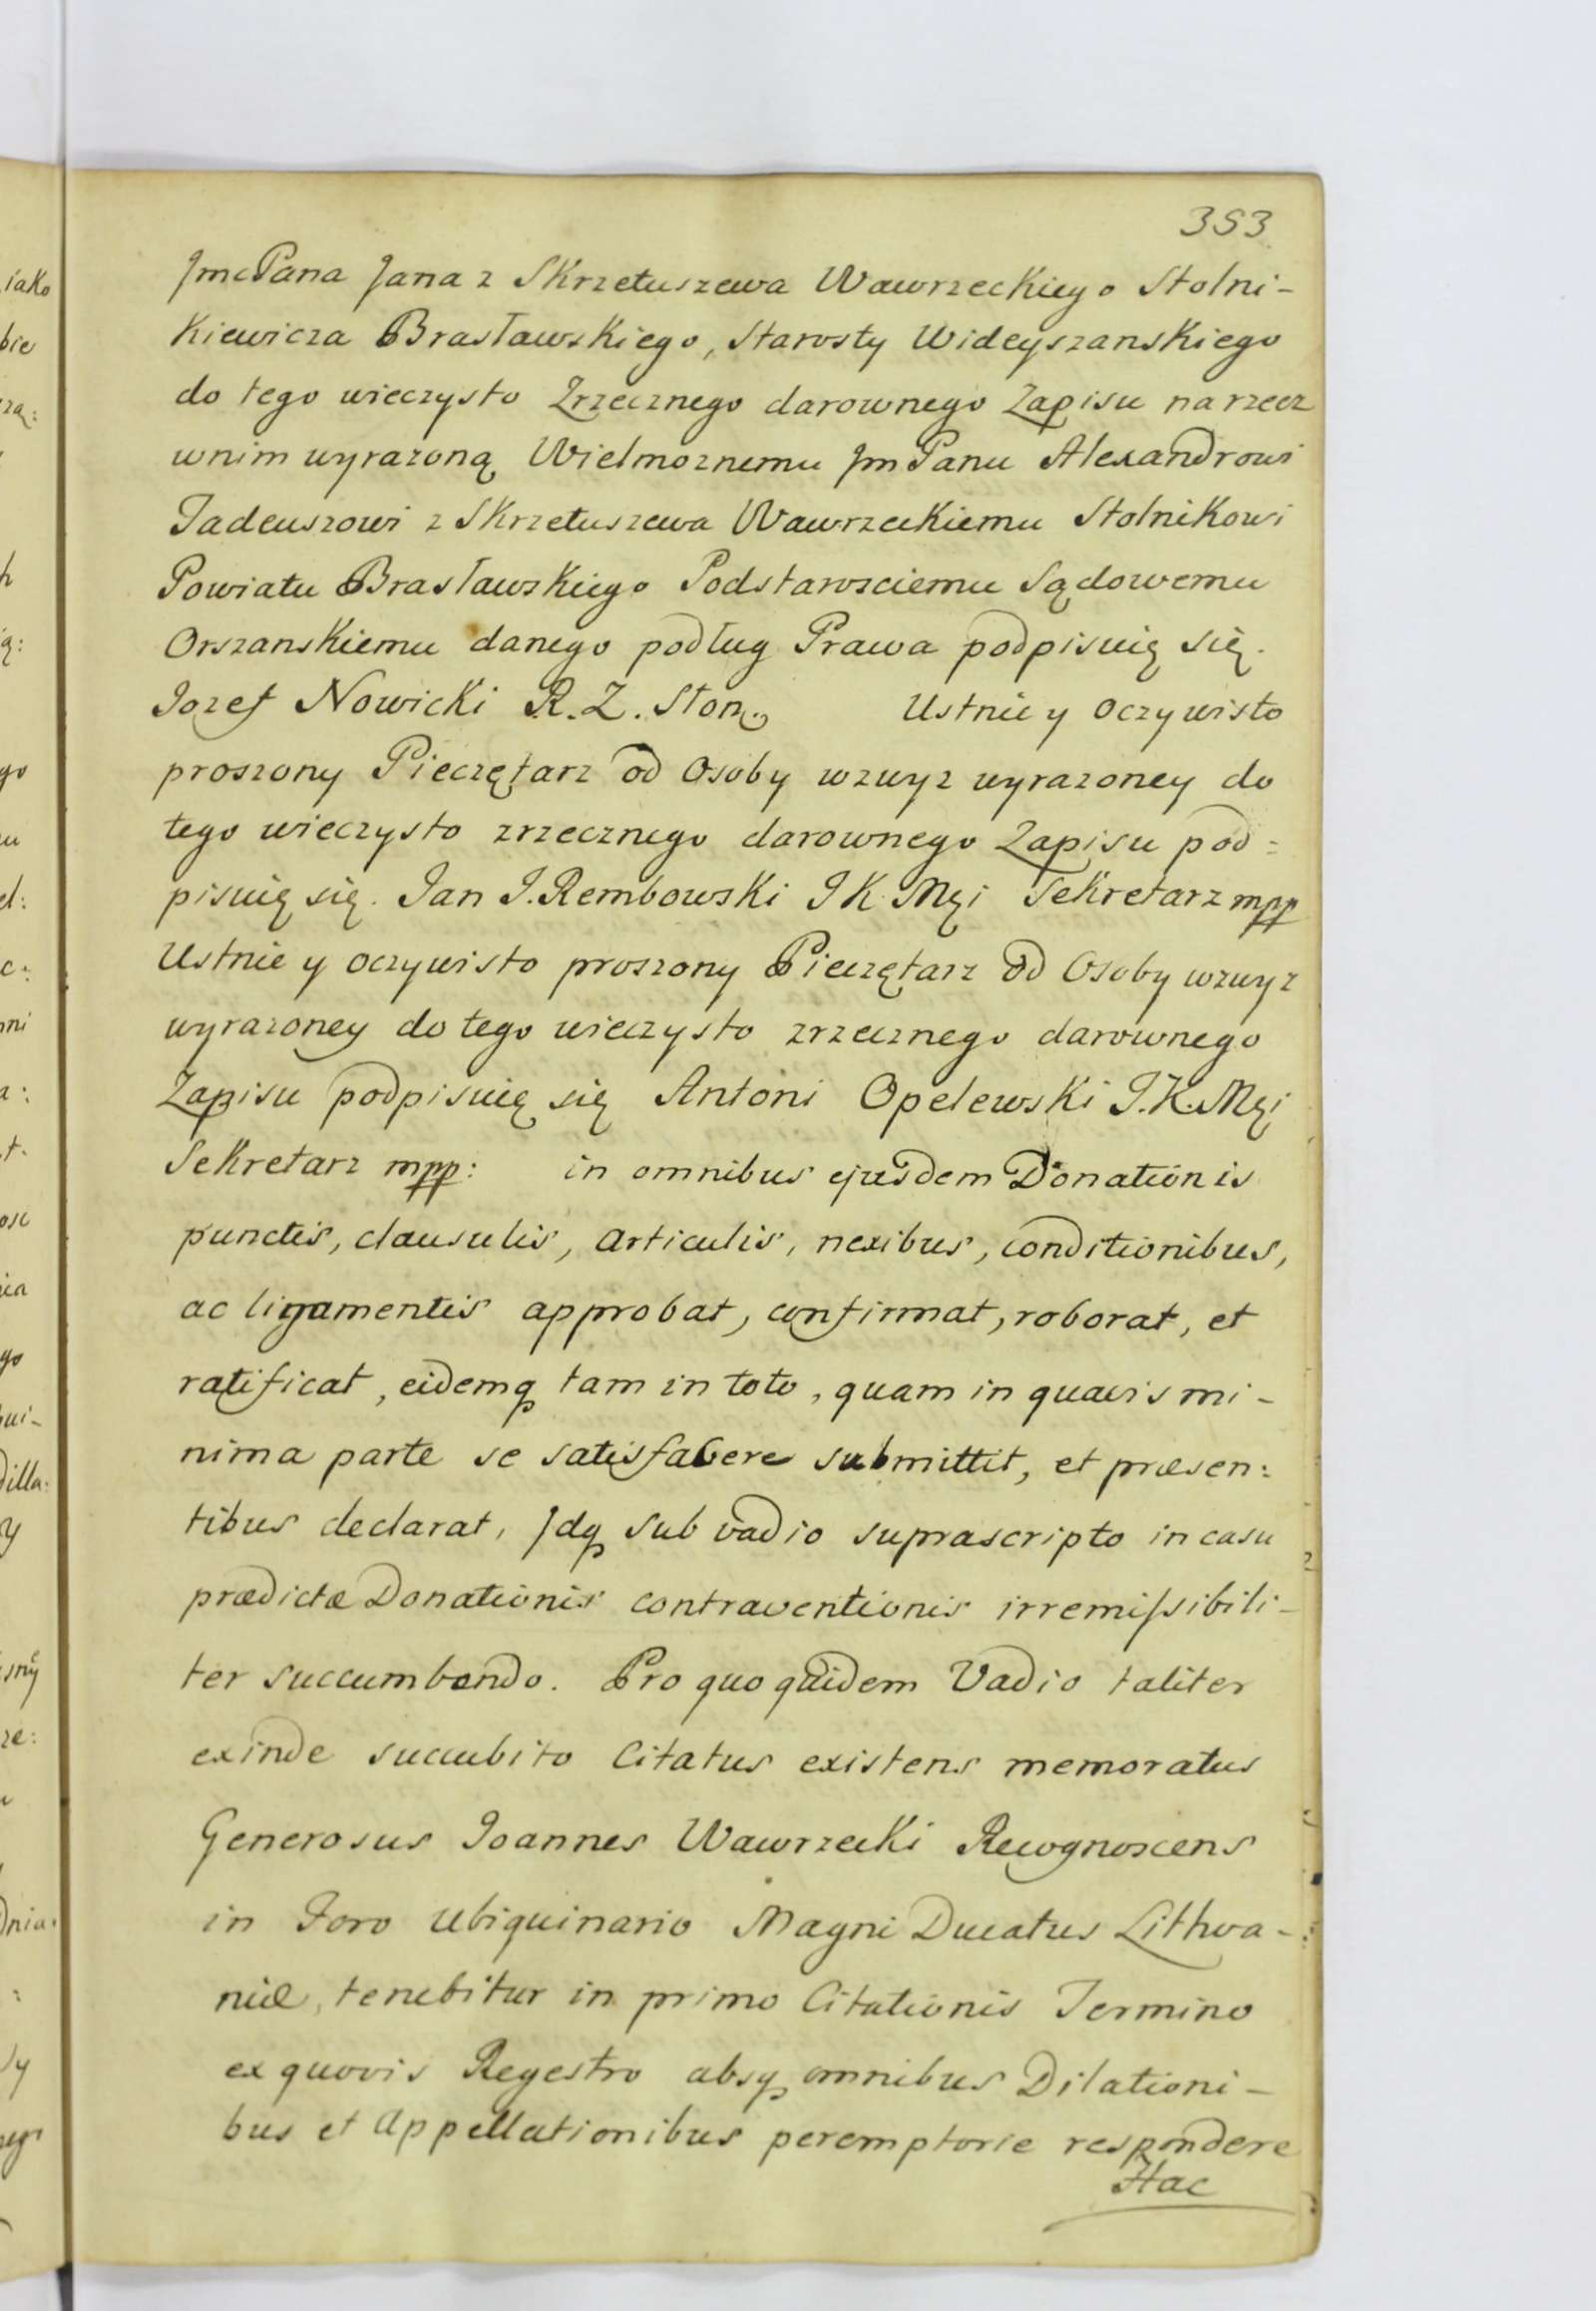 353
JmcPana Jana z Skrzetuszewa Wawrzeckiego Stolni-
kiewicza Brasławskiego, Starosty Wideyszanskiego
do tego wieczysto Zrzecznego darownego Zapisu na rzecz
wnim wyrazoną Wielmoznemu JmPanu Alexandrowi
Tadeuszowi z Skrzetuszewa Wawrzeckiemu Stolnikowi
Powiatu Brasławskiego Podstarosciemu Sądowemu
Orszanskiemu danego podług Prawa podpisuię się.
Jozef Nowicki R. Z. Ston. Ustnie y oczywisto
proszony Pieczętarz od Osoby wzwyz wyrazoney do
tego wieczysto zrzecznego darownego Zapisu pod=
pisuię się. Jan J. Rembowski J K Mci Sekretarz mpp
Ustnie y oczywisto proszony Pieczętarz od Osoby wzwyz
wyrazoney do tego wieczysto zrzecznego darownego
Zapisu podpisuię się Antoni Opelewski J. K. Mci
Sekretarz mpp: in omnibus ejusdem Donationis
punctis, clausulis, articulis, nexibus, conditionibus,
ac ligamentis approbat, confirmat, roborat, et
ratificat, eidemq tam in toto, quam in quavis mi-
nima parte se satisfacere submittit, et præsen:
tibus declarat, Jdq sub vadio suprascripto in casu
prædictæ Donationis contraventionis irremissibili-
ter succumbendo. Pro quo quidem Vadio taliter
exinde succubito Citatus existens memoratus
Generosus Joannes Wawrzecki Recognoscens
in Foro Ubiquinario Magni Ducatus Lithva-
niæ, tenebitur in primo Citationis Termino
ex quovis Regestro absq omnibus Dilationi-
bus et Appellationibus peremptorie respondere
Hac